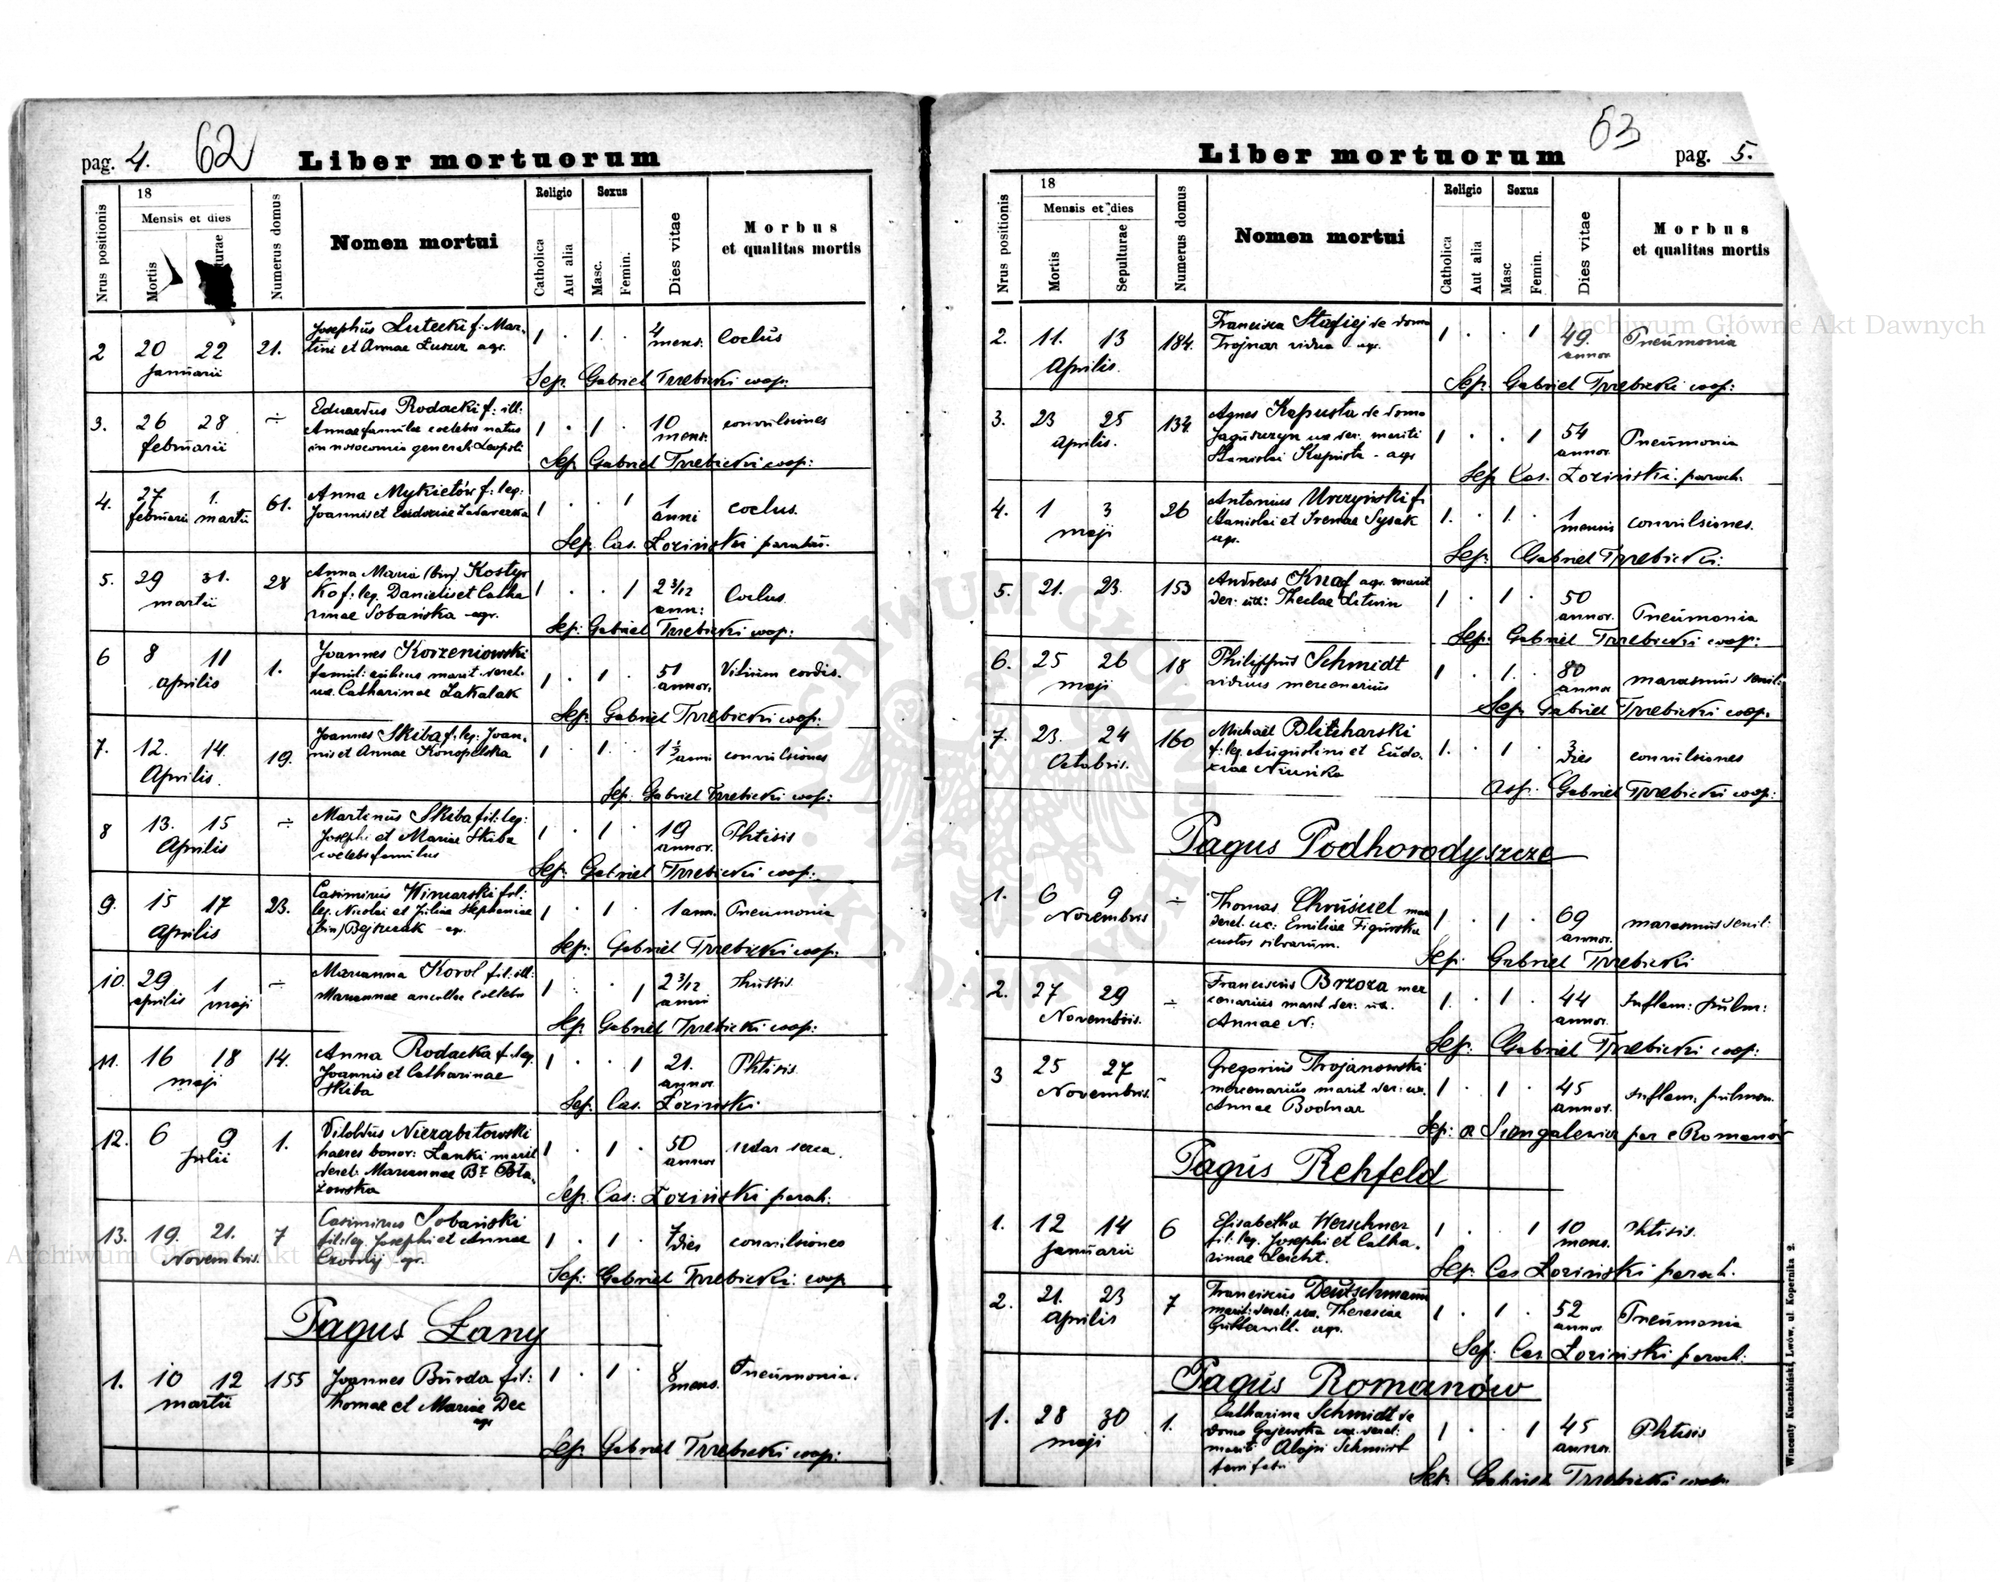 pag. 4. 62 Liber mortuorum
Nrus positionis
18
Mensis et dies
Mortis
Numerus domus
Nomen mortui
Religio
Catholica
Aut alia
Sexus
Masc.
Femin.
Dies vitae
Morbus
et qualitas mortis
2 20 22 21. Josephus Lutecki f: Mar-
tini et Annae agr. 1 . 1. . 4 mens. Coclus
Januarii
Sep. Gabriel Trzebicki coop:
3. 26 28 ÷ Eduardus Rodacki f: ill:
Annae famulae coelebs natus
in nosocomio generali Leopoli 1 . 1 . 10 mens. convulsiones
februarii
Sep Gabriel Trzebicki coop:
4. 27 1. 61. Anna Mykietów f: leg:
februarii martii Joannis et 1 . . 1 1 anni coclus.
Sep. Cas. Łoziński paroch.
5. 29 31. 28 Anna Maria (bin) Kostyr
martii ko f: leg. Danielis et Catha
rinae Sobańska agr. 1 . . 1 2 3/12 ann: Coclus.
Sep: Gabriel Trzebicki coop:
6 8 11 1. Joannes Korzeniowski
Aprilis marit. derel.
ux. Catharinae Zakalak 1 . 1 . 51 annor. Vitium cordis.
Sep. Gabriel Trzebicki coop:
7. 12. 14. 19. Joannes Skiba f: leg: Joan-
Aprilis. nis et Annae Konopelska 1 . 1. . 1 1/2 anni convulsiones
Sep: Gabriel Trzebicki coop:
8 13. 15 ÷ Martinus Skiba fil: leg:
Aprilis Josephi et Mariae Skiba
coelebs famulus 1 . 1 . 19 annor. Phtisis
Sep: Gabriel Trzebicki coop:
9. 15 17 23. Casimirus Winiarski fil:
Aprilis leg. Nicolai et Juliae Stephaniae
(bin) 1 . 1 . 1 ann. Pneumonia
Sep: Gabriel Trzebicki coop:
10. 29 1 ÷ Marianna Korol fil: ill:
aprilis maji Mariannae ancillae coelebs 1 . . 1 2 3/12 anni Thussis.
Sep. Gabriel Trzebicki coop:
11. 16 18 14. Anna Rodacka f: leg.
maji Joannis et Catharinae
Skiba 1 . . 1 21. annor. Phtisis.
Sep: Cas. Łoziński
12. 6 9 1. Vitoldus Niezabitowski
Julii haeres bonor: Lanki marit
derel: Mariannae Br Bła-
żowska 1 . 1 . 50 annor
Sep. Cas: Łoziński paroch:
13. 19. 21. 7 Casimirus Sobański
Novembris. fil: leg. Josephi et Annae
agr. 1 . 1 . 7 dies convulsiones
Sep: Gabriel Trzebicki: coop
Pagus Łany
1. 10 12 155 Joannes Burda fil:
martii Thomae et Mariae Dec
agr 1 . 1 . 8 mens. Pneumonia.
Sep. Gabriel Trzebicki coop:
Liber mortuorum 63 pag. 5.
Nrus positionis
18
Mensis et dies
Mortis
Sepulturae
Numerus domus
Nomen mortui
Religio
Catholica
Aut alia
Sexus
Masc
Femin.
Dies vitae
Morbus
et qualitas mortis
2. 11. 13 184. Francisca Stafiej de domo
Aprilis. Trojnar vidua agr. 1 . . 1 49. annor Pneumonia
Sep. Gabriel Trzebicki coop:
3. 23 25 134. Agnes Kapusta de domo
Aprilis. ux der. mariti
Stanislai Kapusta - agr 1 . . 1 54 annor. Pneumonia
Sep Cas. Łoziński: paroch.
4. 1 3 26 Antonius Urczyński f.
maji Stanislai et Irenae Sysak
agr. 1. . 1. . 1 mensis convulsiones.
Sep: Gabriel Trzebicki:
5. 21. 23. 153 Andreas Knaf agr. marit
der. ux: Theclae Litwin 1 . 1 . 50 annor. Pneumonia
Sep. Gabriel Trzebicki coop:
6. 25 26 18 Philippus Schmidt
maji viduus mercenarius 1 . 1. . 80 annor marasmus senil:
Sep. Gabriel Trzebicki coop.
7. 23. 24 160 Michaël Blicharski
Octobris. f: leg. Augustini et Eudo-
xiae 1. . 1 . 3 dies convulsiones
asp. Gabriel Trzebicki coop:
Pagus Podhorodyszcze
1. 6 9 ÷ Thomas Chruściel mar
Novembris derel. ux: Emiliae Figurska
custos silvarum. 1 . 1 . 69 annor. marasmus senil:
Sep. Gabriel Trzebicki
2. 27 29 ÷ Franciscus Brzoza mer
Novembris. cenarius marit der: ux.
Annae N: 1. . 1 . 44 annor. Inflam: pulm:
Sep: Gabriel Trzebicki coop:
3 25 27 Gregorius Trojanowski
Novembris. mercenarius marit der: ux.
Annae Bodnar 1 . 1 . 45 annor. Inflam: pulmon.
Pagus Rehfeld
1. 12 14 6 Elisabetha Werschner
Januarii fil: leg. Josephi et Catha-
rinae Leicht. 1 . . 1 10 mens. Phtisis.
Sep. Cas Łoziński paroch.
2. 21. 23 7 Franciscus Deutschmann
Aprilis marit: derel: ux. Theresiae
agr. 1 . 1 . 52 annor. Pneumonia
Sep: Cas Łoziński paroch:
Pagus Romanów
1. 28 30 1. Catharina Schmidt de
maji domo Gajewska ux. derel:
mariti Aloisi Schmidt 1 . . 1 45 annor. Phtisis
Sep: Gabriel Trzebicki coop.
Wincenty Kuczabiński, Lwów, ul. Kopernika 2.
Archiwum Główne Akt Dawnych
Archiwum Główne Akt Dawnych
ARCHIWUM GŁÓWNE AKT DAWNYCH